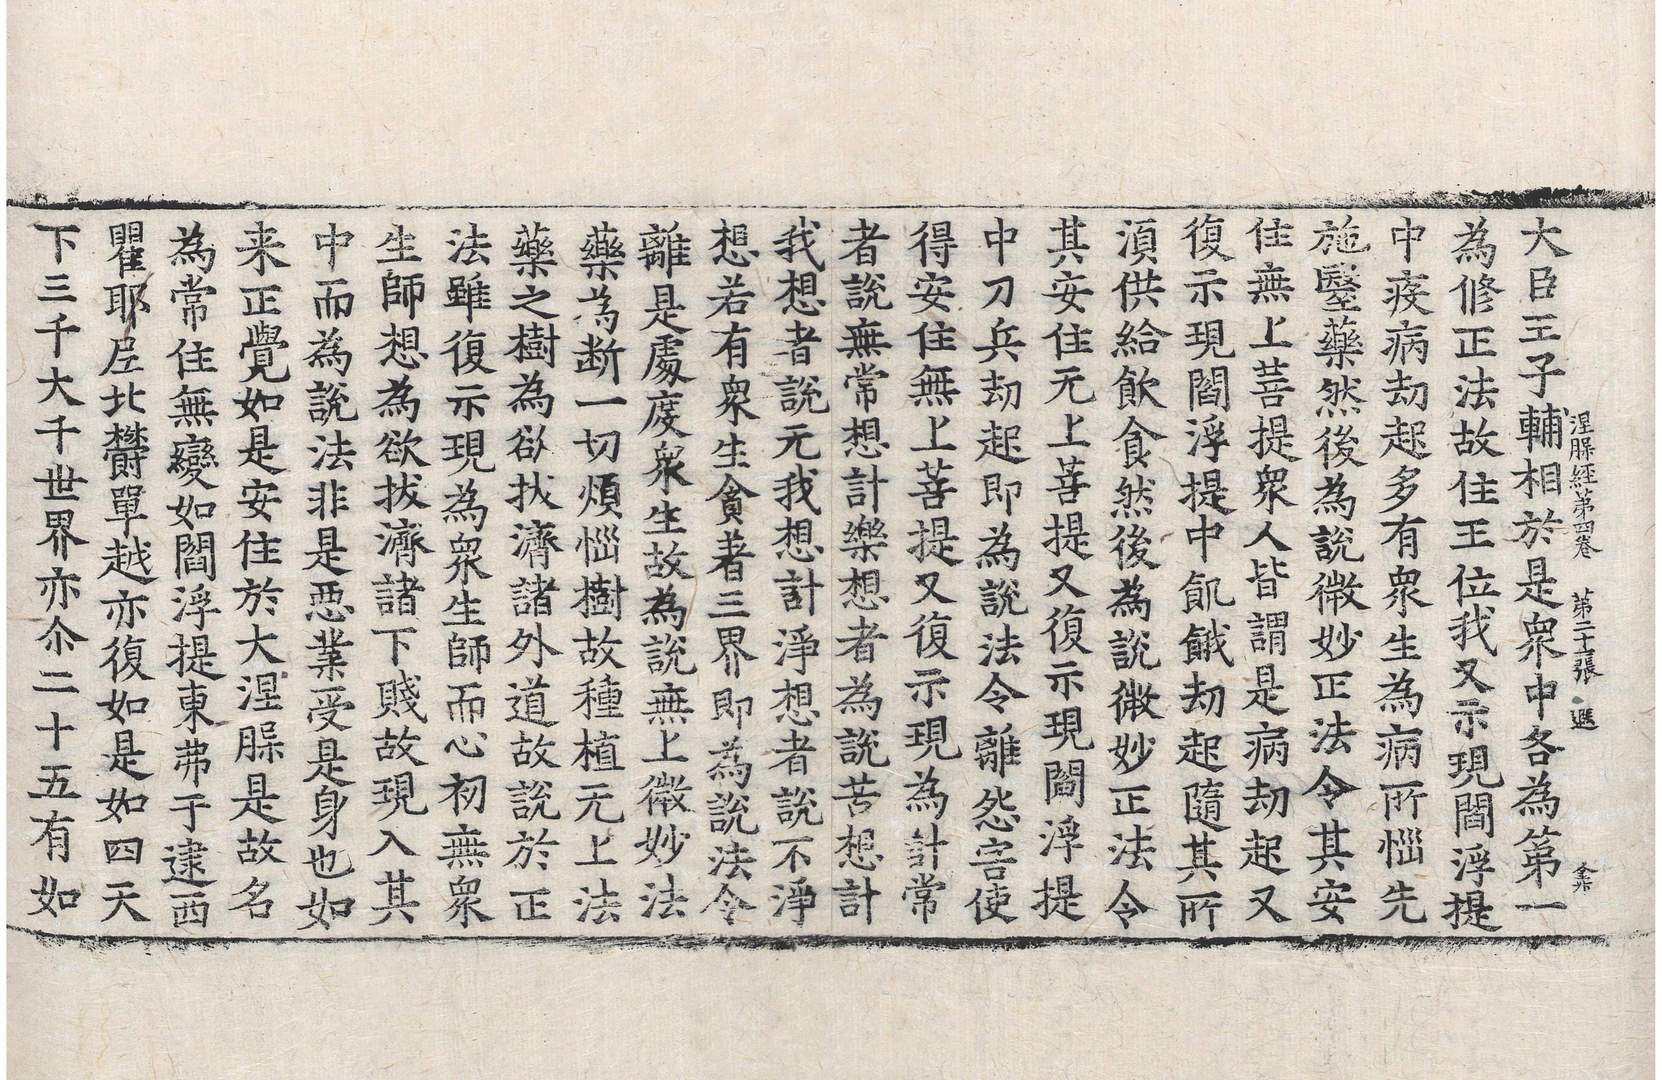 涅槃經第四卷　第二十張　遐　金升
大臣王子輔相於是衆中各為第一
為修正法故住王位我又示現閻浮提
中疫病劫起多有衆生為病所惱先
施醫藥然後為說微妙正法令其安
住無上菩提衆人皆謂是病劫起又
復示現閻浮提中飢餓劫起隨其所
湏供給飲食然後為說微妙正法令
其安住无上菩提又復示現閻浮提
中刀兵劫起即為說法令離怨害使
得安住無上菩提又復示現為計常
者說無常想計樂想者為說苦想計
我想者說无我想計淨想者說不淨
想若有衆生貪著三界即為說法令
離是處度衆生故為說無上微妙法
藥為断一切煩惱樹故種植无上法
藥之樹為欲拔濟諸外道故說於正
法雖復示現為衆生師而心初無衆
生師想為欲拔濟諸下賤故現入其
中而為說法非是惡業受是身也如
来正覺如是安住於大涅槃是故名
為常住無變如閻浮提東弗于逮西
瞿耶尼北欝單越亦復如是如四天
下三千大千世界亦尒二十五有如